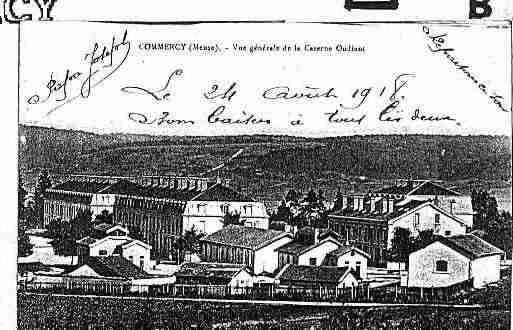 CY
B
COMMERCY (Meuse). - Vue générale de la Caserne Oudinot
Le 24 Août 1918.
Bons baisers à tous les deux.